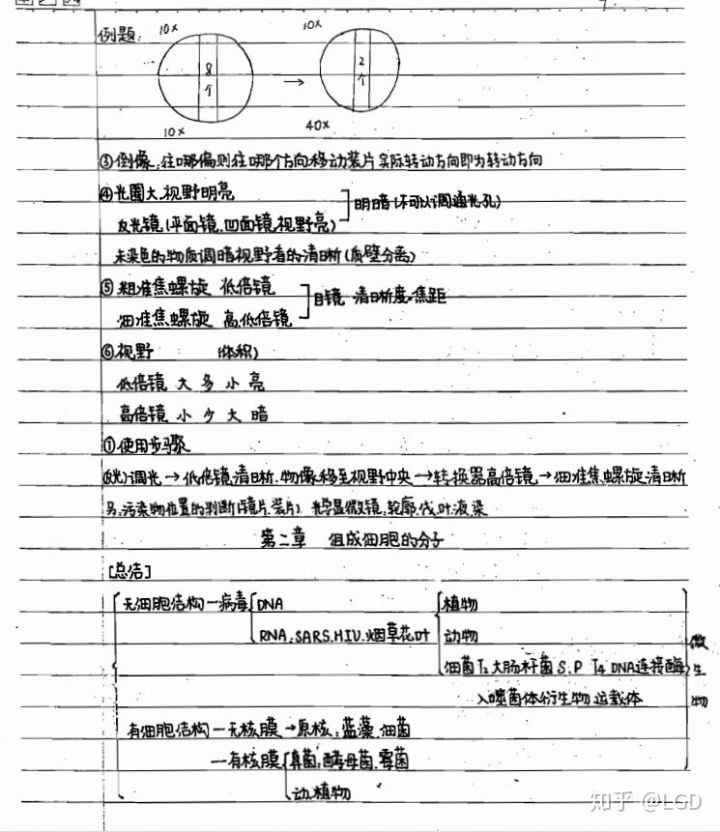 例题: 10× 10×
8个 → 2个
10× 40×
③倒像,往哪偏则往哪个方向移动装片 实际转动方向即为转动方向
④光圈大,视野明亮
反光镜(平面镜.凹面镜,视野亮)
明暗(不可以调通光孔)
未染色的物质调暗视野看的清晰(质壁分离)
⑤粗准焦螺旋 低倍镜
细准焦螺旋 高,低倍镜
目镜 清晰度.焦距
⑥视野 (体积)
低倍镜 大 多 小 亮
高倍镜 小 少 大 暗
①使用步骤
调光→低倍镜,清晰.物像移至视野中央→转换器高倍镜→细准焦螺旋,清晰
另,污染物位置的判断(镜片.装片) 光学显微镜,轮廓
第二章 组成细胞的分子
[总结]
无细胞结构—病毒 DNA 植物
RNA:SARS.HIV.烟草花叶 动物
细菌T₂大肠杆菌 S.P T₄DNA连接酶
λ噬菌体衍生物 运载体
微生物
有细胞结构—无核膜→原核:蓝藻.细菌
—有核膜 真菌:酵母菌.霉菌
动.植物
知乎 @LGD